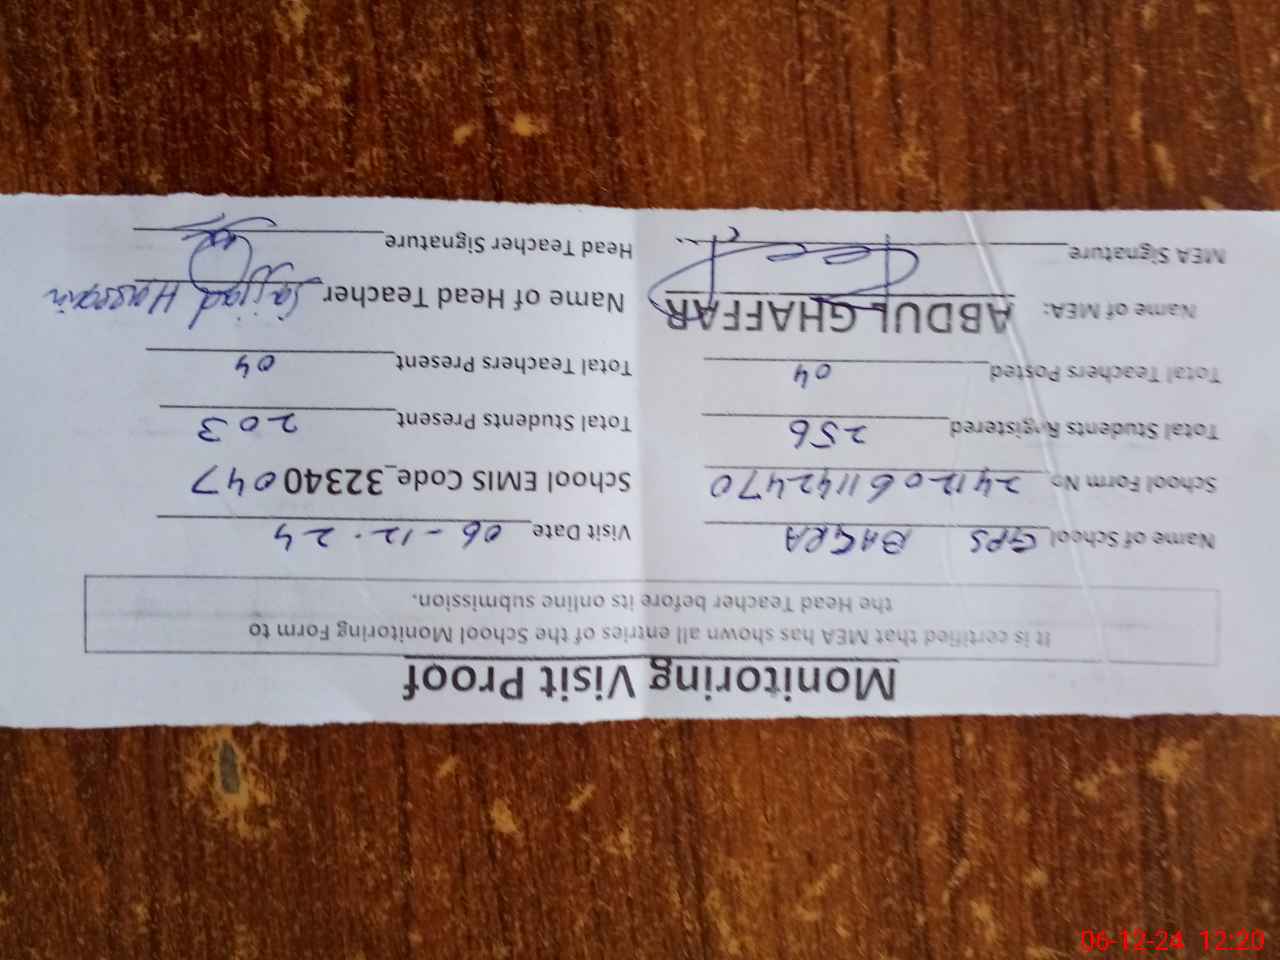 Monitoring Visit Proof
It is certified that MEA has shown all entries of the School Monitoring Form to
the Head Teacher before its online submission.
Name of School GPS BAGRA Visit Date 06-12.24
School Form No 2412061142470 School EMIS Code 32340047
Total Students Registered 256 Total Students Present 203
Total Teachers Posted 04 Total Teachers Present 04
Name of MEA: ABDUL GHAFFAR Name of Head Teacher Sajjad Hussain
MEA Signature Head Teacher Signature
06-12-24 12:20